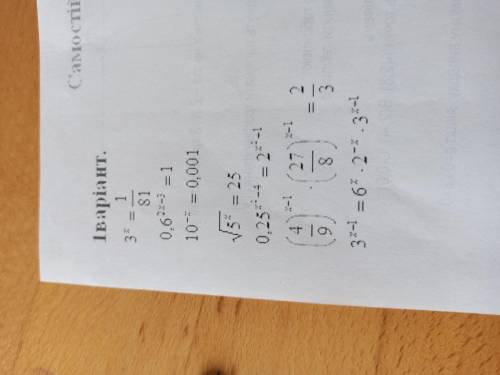 Самостій
1варіант.
3^x = 1/81
0,6^{2x-3} = 1
10^{-x} = 0,001
√5^x = 25
0,25^{x^2-4} = 2^{x^2-1}
(4/9)^{x-1} · (27/8)^{x-1} = 2/3
3^{x-1} = 6^x · 2^{-x} · 3^{x-1}